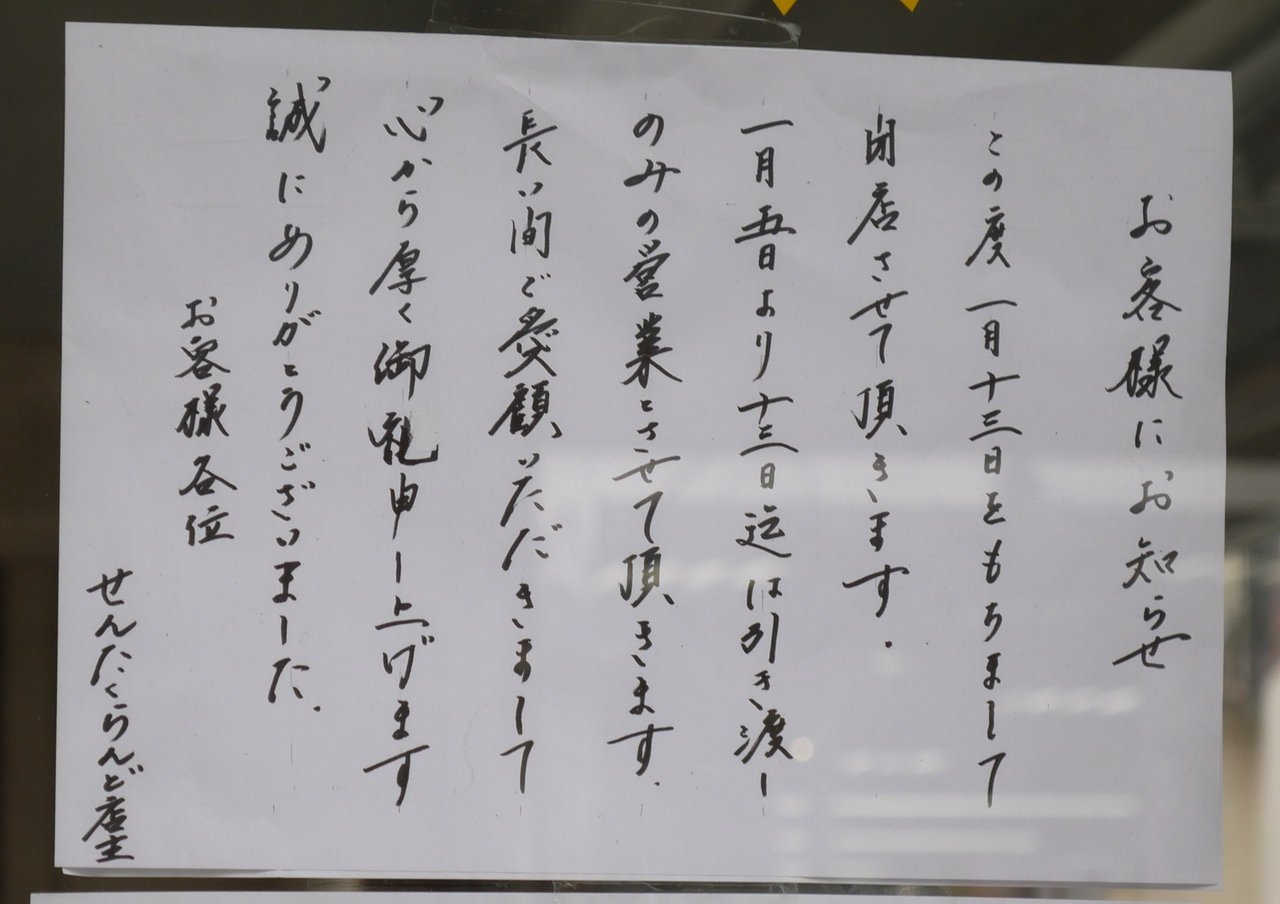 お客様にお知らせ
この度一月十三日をもちまして
閉店させて頂きます.
一月五日より十三日迄は引き渡し
のみの営業とさせて頂きます.
長い間ご愛顧いただきまして
心から厚く御礼申し上げます
誠にありがとうございました.
お客様各位
せんたくらんど店主